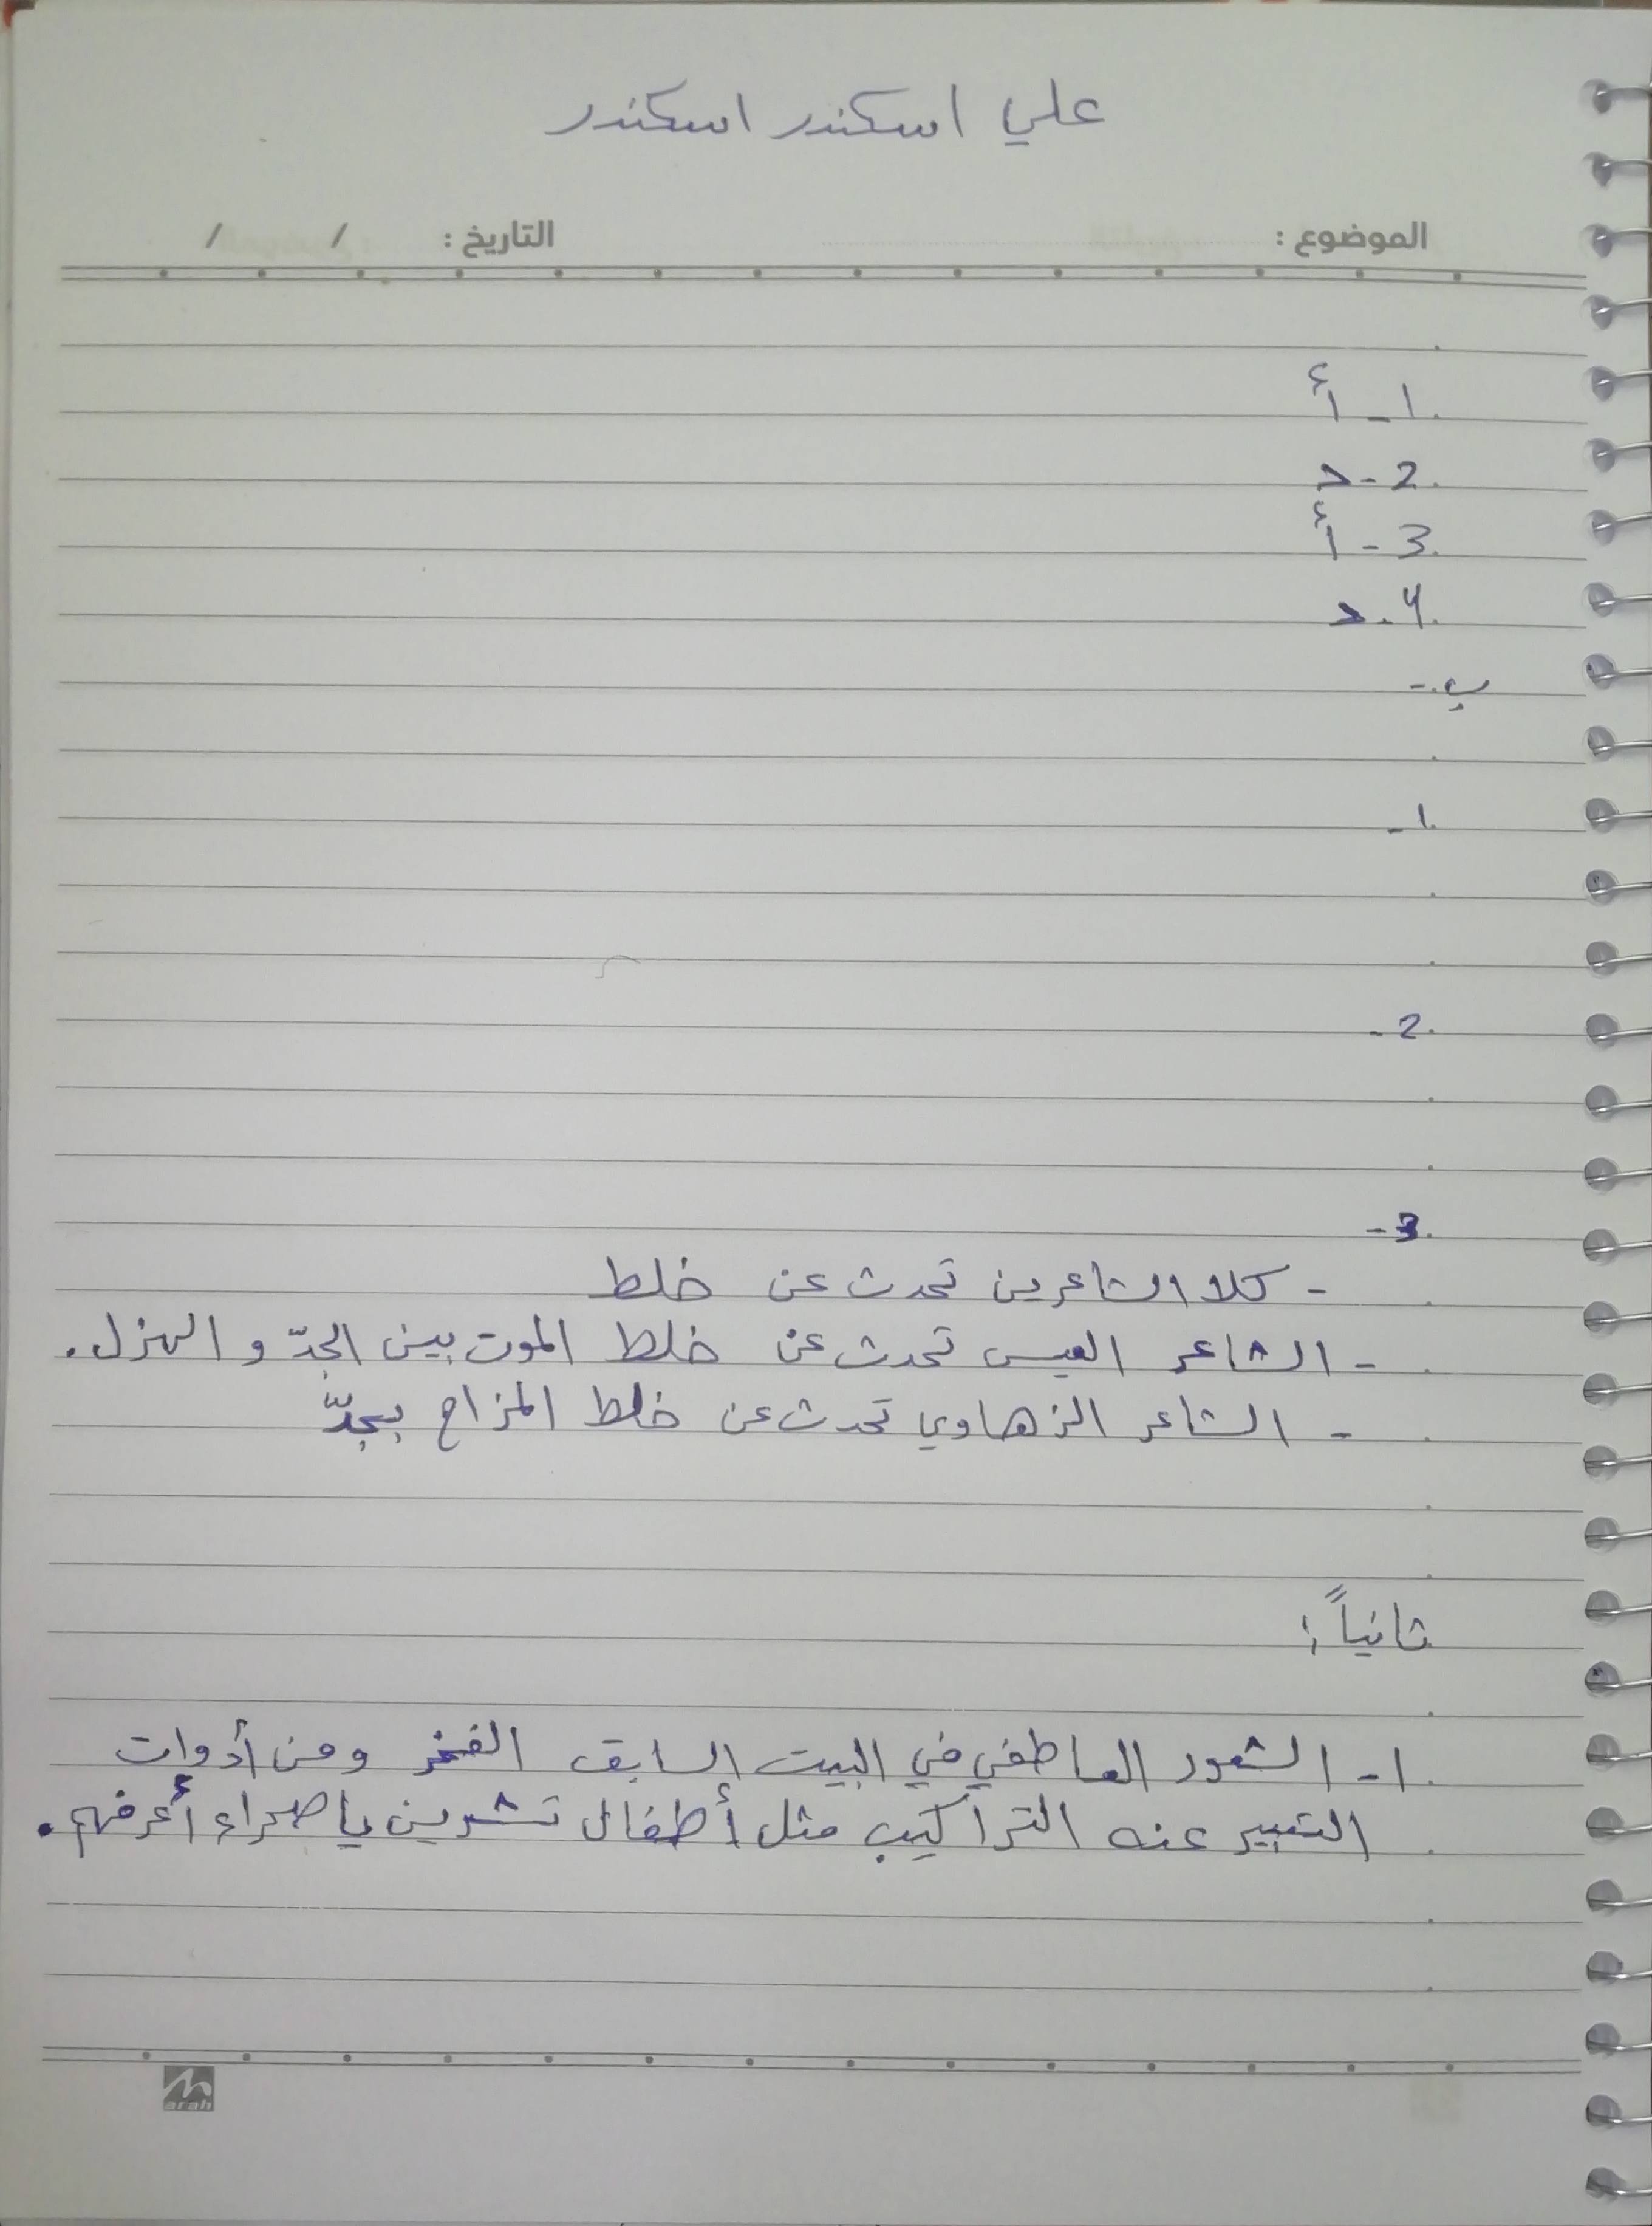 علي اسكندر اسكندر
الموضوع : التاريخ : / /
1 - أ
2 - د
3 - أ
4 - د
ب -
1 -
2 -
3 -
- كلا الشاعرين تحدث عن خلط
- الشاعر العيسى تحدث عن خلط الموت بين الجدّ و الهزل .
- الشاعر الزهاوي تحدث عن خلط المزاح بجدّ
ثانياً :
1 - الشعور العاطفي في البيت السابق الفخر ومن أدوات
التعبير عنه التراكيب مثل أطفال تشرين يا صحراء أعرفهم .
arah